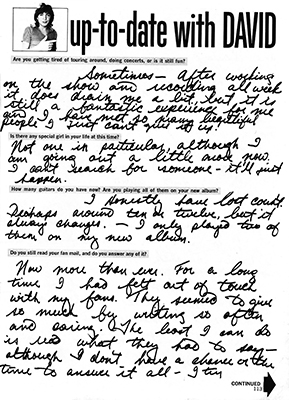 up-to-date with DAVID
Are you getting tired of touring around, doing concerts, or is it still fun?
Sometimes - After working
on the show and recording all week
it does drain me a bit. But it is
still a fantastic experience for me
and I have met so many beautiful
people I just can't give it up!
Is there any special girl in your life at this time?
Not one in particular, although I
am going out a little more now.
I can't search for someone - it'll just
happen.
How many guitars do you have now? Are you playing all of them on your new album?
I honestly have lost count.
Perhaps around ten or twelve, but it
always changes. - I only played two of
them on my new album.
Do you still read your fan mail, and do you answer any of it?
Now more than ever. For a long
time I had felt out of touch
with my fans. They seemed to give
so much by writing so often
and caring. The least I can do
is read what they had to say -
although I don't have a chance or the
time to answer it all - I try
CONTINUED
113